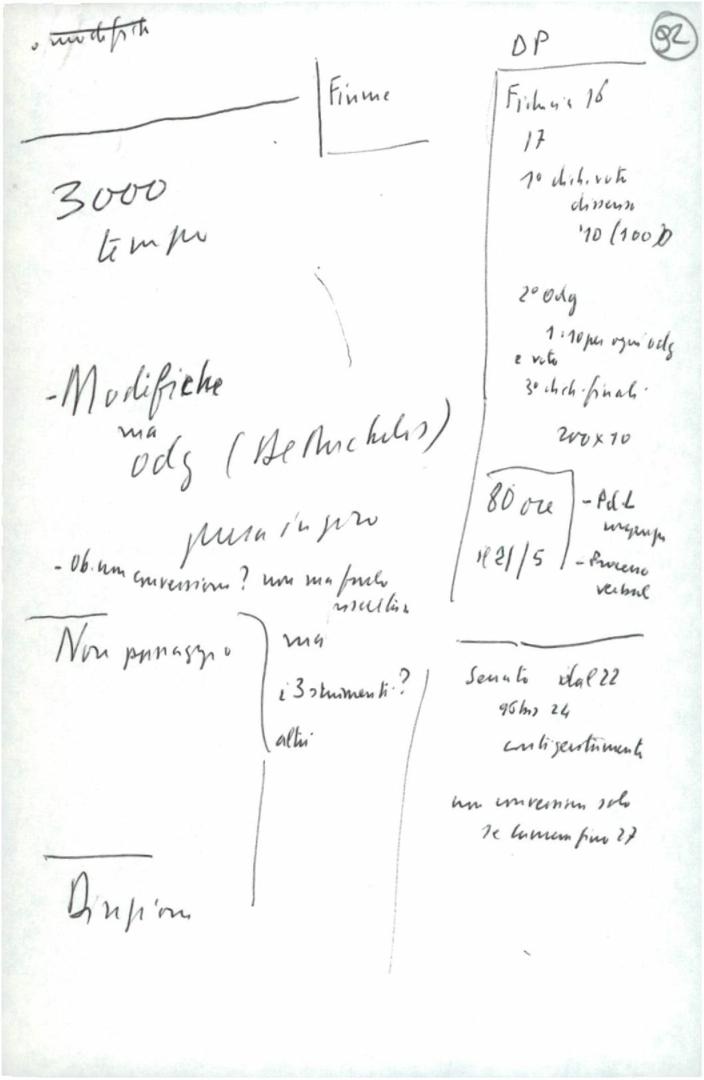 modifiche
92
3000
tempo
- Modifiche
ma
odg (De Michelis)
presa in giro
- Ob. non conversione? non ma
Non passaggio
ma
i 3 strumenti?
altri
DP
Fiducia 16
17
1° dich. voto
dissenso
'10 (100)
2° odg
1:10 per ogni odg
e voto
3° dich. finali
200 x 10
80 ore
il 21/5
- Pd.L
- Processo
verbale
Senato dal 22
96 bis 24
contingentamento
non conversione solo
se Camera fino 27